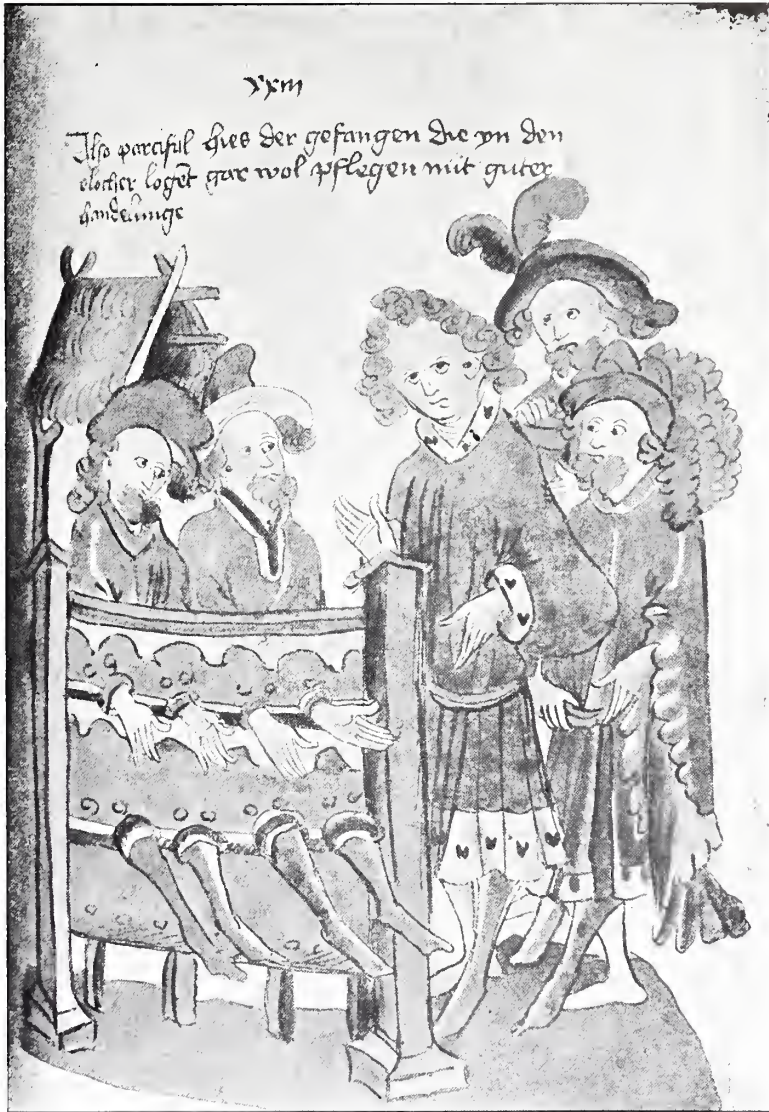 xxiii
Also parcifal hies der gefangen die yn den
blocher logẽt gar wol pflegen mit guter
handelunge